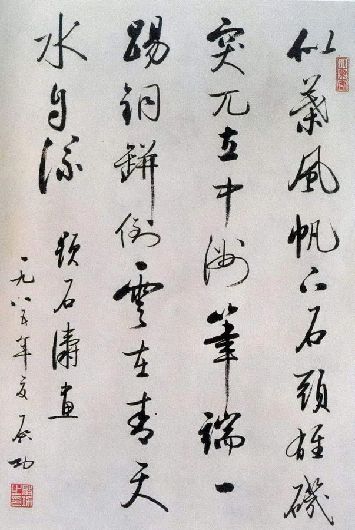 似叶风帆下石头雄矶
突兀立中洲笔端一
踢铜瓶倒云在青天
水自流
题石涛画
一九八五年夏 启功